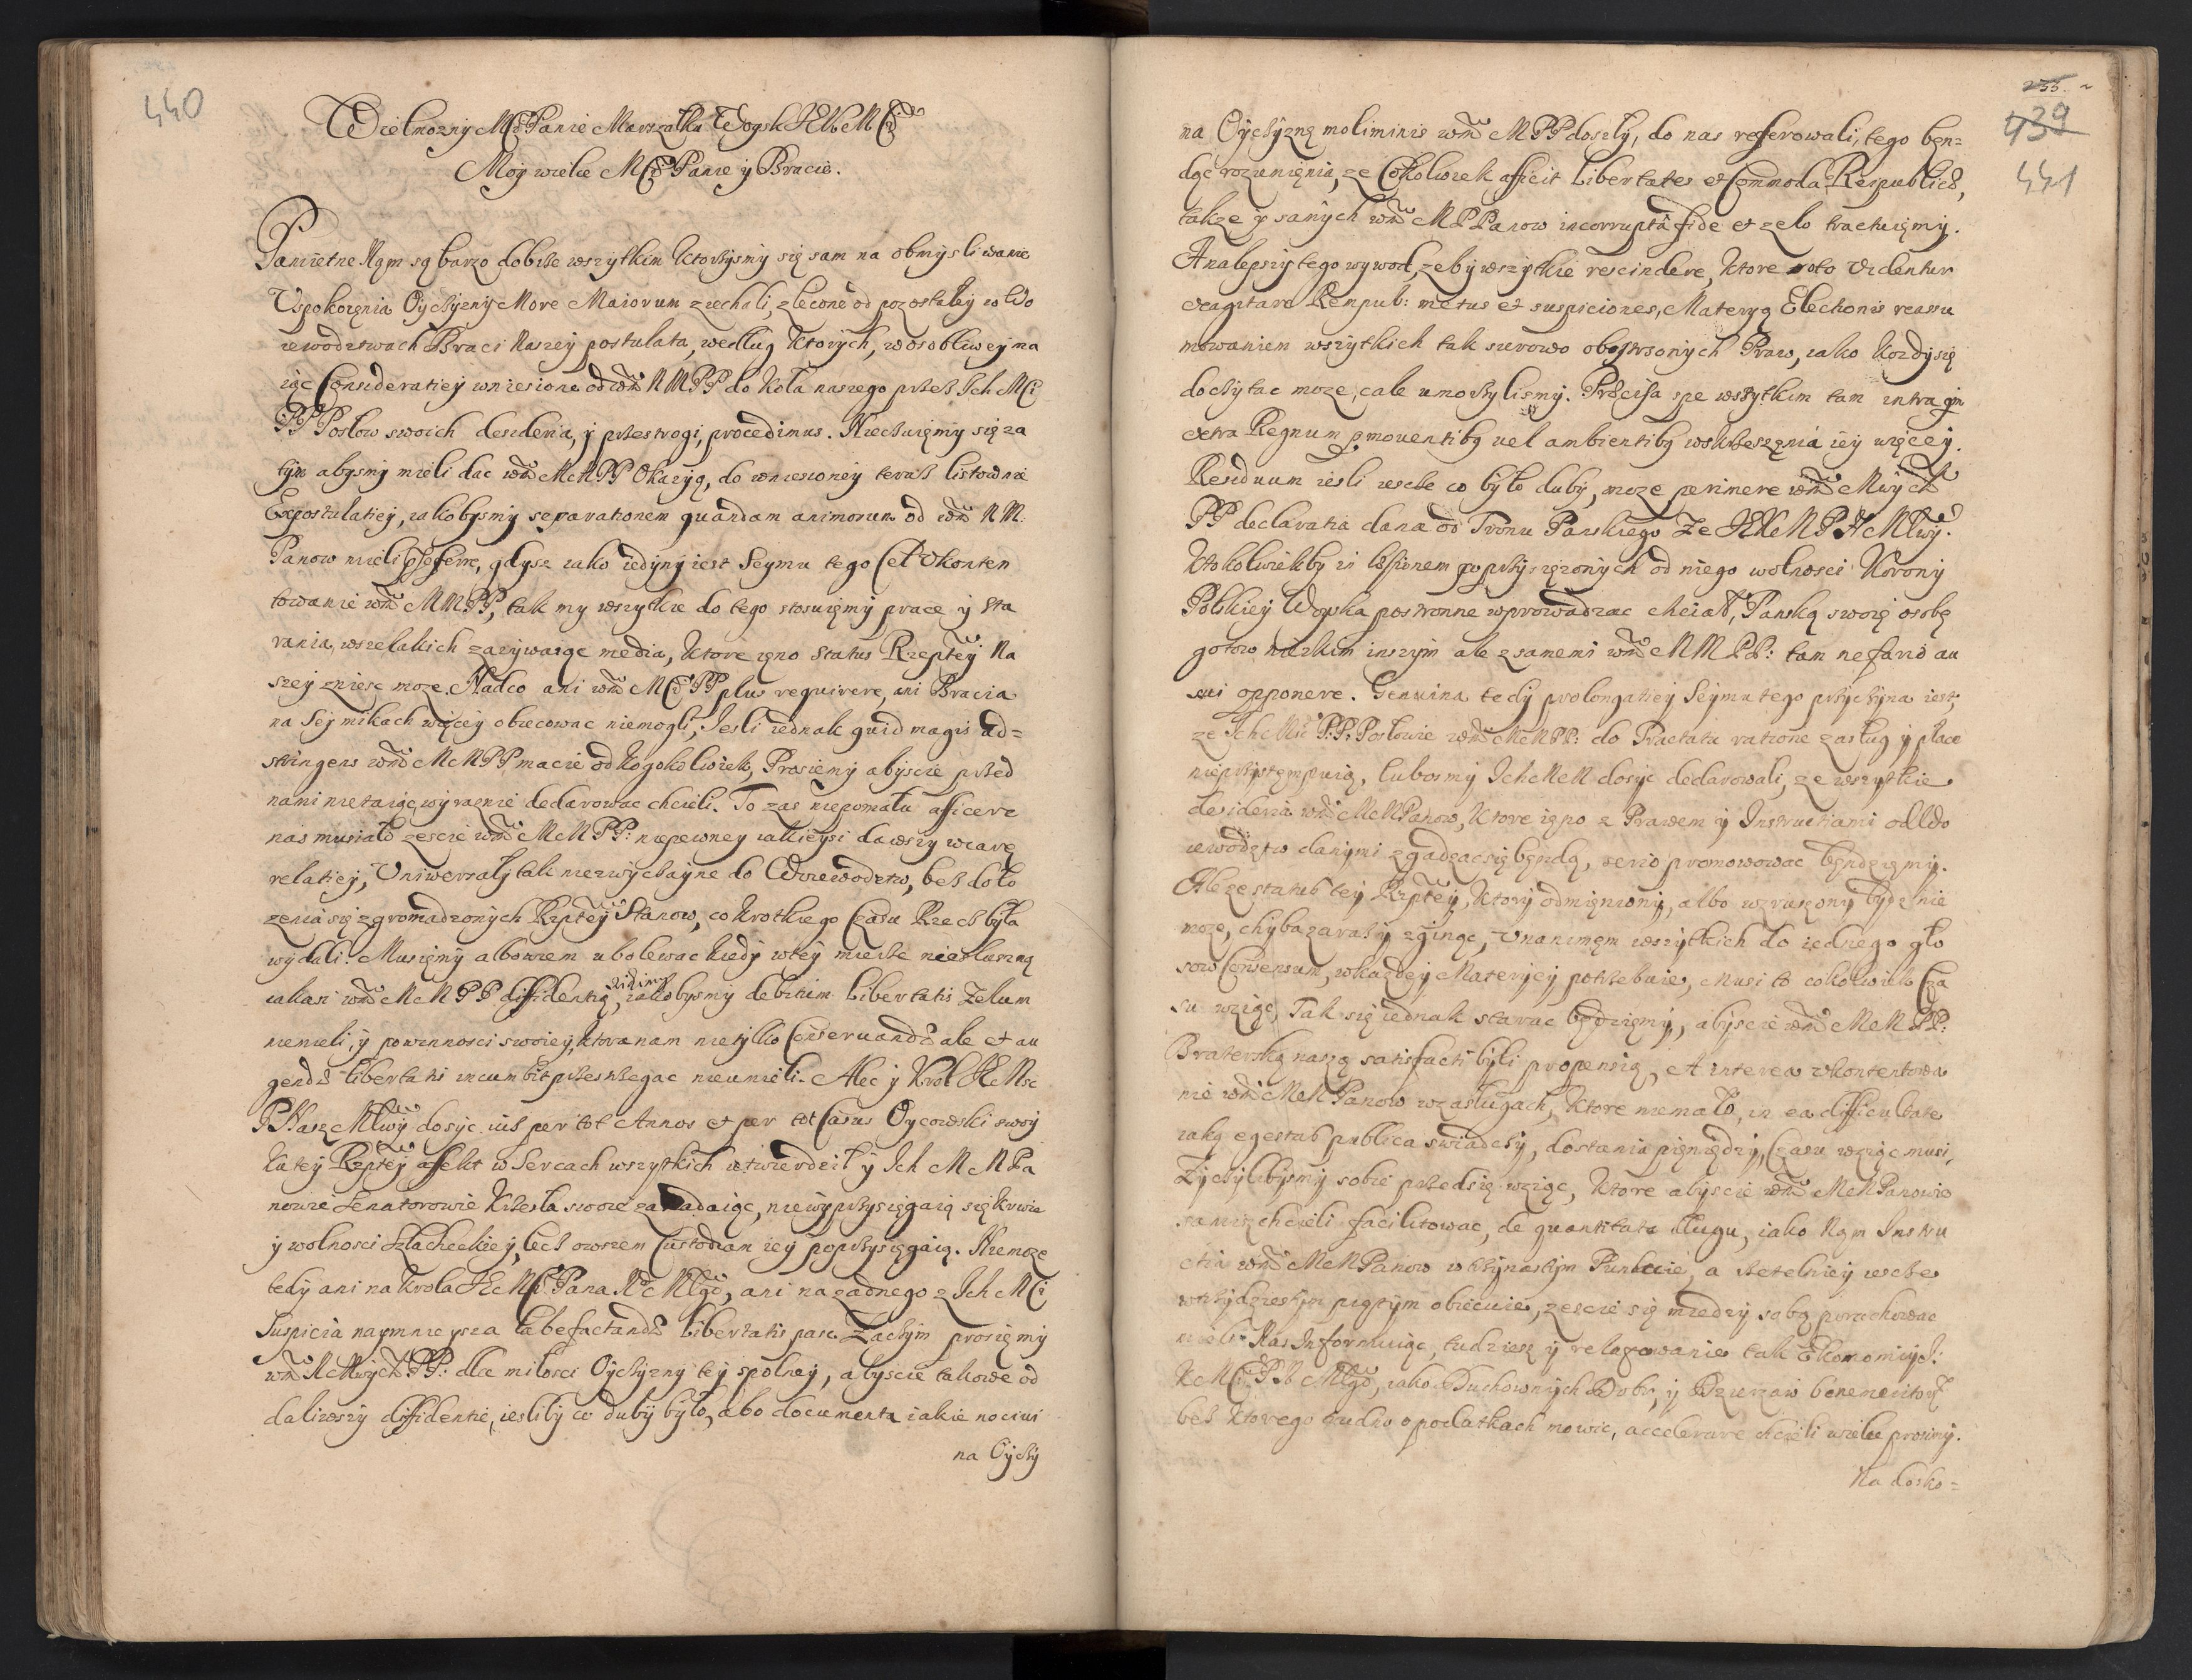 440
Wielmozny Mći Panie Marszałku Woysk JKM Mći
Moy wielce Mći Panie y Bracie.
Pamiętne Nam są barzo dobrze wszytkim ktorzysmy się sam na obmysliwanie
Uspokoięnia Oyczyzny More Maiorum ziechali, zlecone od pozostałey w Wo
iewodztwach Braci Naszey postulata, według ktorych, w osobliwey ma
iąc Consideratiey wniesione od wm̃ MMPP do Koła naszego przez Ich Mći
PP Posłow swoich desideria, y przestrogi, procedimus. Nieczuięmy się za
tym abysmy mieli dac wm̃ MMPP Okazyą, do wniesioney teraz listownie
Expostulatiey, iakobysmy separationem quandam animorum od wm̃ MM.
Panow mieli , gdysz iako iedyny iest Seymu tego Cel Ukonten
towanie wm̃ MMPP, tak my wszytkie do tego stosuięmy prace y sta
rania, wszelakich zazywaiąc media, ktore ięno status Rzeptey Na
szey zniesc moze. Nadco ani wm̃ Mći PP plus requirere, ani Bracia
na Seymikach więcey obiecowac niemogli, Iesli iednak quid magis ad=
stringens wm̃ MMPP macie od kogokolwiek, Prosiemy abyscie przed
nami nietaiąc wyraznie declarowac chcieli. To zas niepomału afficere
nas musiało zescie wm̃ MMPP: niepewney iakieysi dawszy wiarę
relatiey, Uniwersały tak niezwyczayne do Woiewodztw, bez doło
zenia się zgromadzonych Rzptey Stanow, co krotkiego Czasu Rzecz była
wydali. Musięmy albowiem ubolewac kiedy w tey mierze niesłuszną
iakasi wm̃ MMPP diffidentią, widzimy iakobysmy debitum Libertatis Zelum
niemieli, y powinnosci swoiey, ktora nam nietylko Conservandæ ale et au
gendæ libertatis incumbit przestrzegac nieumieli. Alec y Krol JEMsc
P Nasz Mlwy dosyc iusz per tot Annos et per tot Casus Oycowski swoy
ka tey Rzptey affekt w Sercach wszytkich utwierdzil y Ich MM Pa
nowie Senatorowie Krzesła swoie zasiadaiąc, niewyprzysięgaią się krwie
y wolnosci Szlacheckiey, lecz owszem Custodiam iey poprzysięgaią. Niemoze
tedy ani na Krola JEMći Pana NMMłgo, ani na zadnego z Ich Mći
Suspicia naymnieysza labefactandæ libertatis pasc. Zaczym prosięmy
wm̃ MMwych PP: dla milosci Oyczyzny tey spolney, abyscie takowe od
daliwszy diffidentie, iesliby co duby było, abo documenta iakie nocivi
na Oyczy
235.
439
441
na Oyczyznę moliminis wm̃ MPP doszły, do nas referowali, tego bęn=
dąc rozumięnia, ze Cokolwiek afficit Libertates et Commoda Reipublicæ,
takze y samych wm̃ MPPanow incorrupta fide et zelo tractuięmy.
A nalepszy tego wywod, zeby wszytkie rescindere, ktore  videntur
exagitare Rempub: metus et suspiciones, Materyą Electionis reassu
mowaniem wszytkich tak surowo obostrzonych Praw, iako kozdy się
doczytac moze, cale umorzylismy. Præcisa spe wszytkim tam intra qm
extra Regnum pmoventibq vel ambientibq wskrzeszęnia iey więcey.
Residuum iesli iescze co było duby, moze perimere wm̃ Mwych
PP declaratia dana od Tronu Panskiego Ze JKMPNMłwy.
Ktokolwiekby in læsionem poprzysięzonych od niego wolnosci Korony
Polskiey Woyska postronne wprowadzac chciał, Panską swoię osobę
gotow niezkim inszym ale z samemi wm̃ MMPP: tam nefario au
sui opponere. Genuina tedy prolongatiey Seymu tego przyczyna iest,
ze Ich Mći P.P. Posłowie wm̃ MMPP: do Tractatu ratione zasług y płace
nieprzystęmpuią, lubosmy Ichmm dosyc declarowali, ze wszytkie
desideria wm̃ MMPanow, ktore ięno z Prawem y Instructiami od Wo
iewodztw danymi zgadzac się będą, serio promowowac bęndzięmy.
Ale ze status tey Rzptey, ktory odmięniony, albo wzruszony bydz nie
moze, chyba zarasz y zginąc, Unanimem wszytkich do iednego gło
sow Consensum, w kazdey Materyey potrzebuie, Musi to cokolwiek Cza
su wziąc, Tak się iednak starac będzięmy, abyscie wm̃ MMPP:
Braterską naszą satisfacti byli propensią, A interea Ukontentowa
nie wm̃ MMPanow w zasługach, ktore niemało, in ea difficultate
iaką egestas publica swiadczy, dostania pięniędzy, Czasu wziąc musi,
Zyczylibysmy sobie przedsię wziąc, ktore abyscie wm̃ MMPanowie
sami zchcieli facilitowac, de quantitate długu, iako Nam Instru
ctia wm̃ MMPanow w trzynastym Punkcie, a rzetelniey iescze
w trzydziestym piątym obiecuie, zescie się miedzy sobą porachowac
mieli Nas Informuiąc, tudziesz y relaxowanie tak Ekonomiy J:
KMći PN Młgo, iako Duchownych Dobr, y Dzierzaw benemeritor
bez ktorego trudno o podatkach mowic, accelerare chcieli wielce prosimy.
Na dosko=